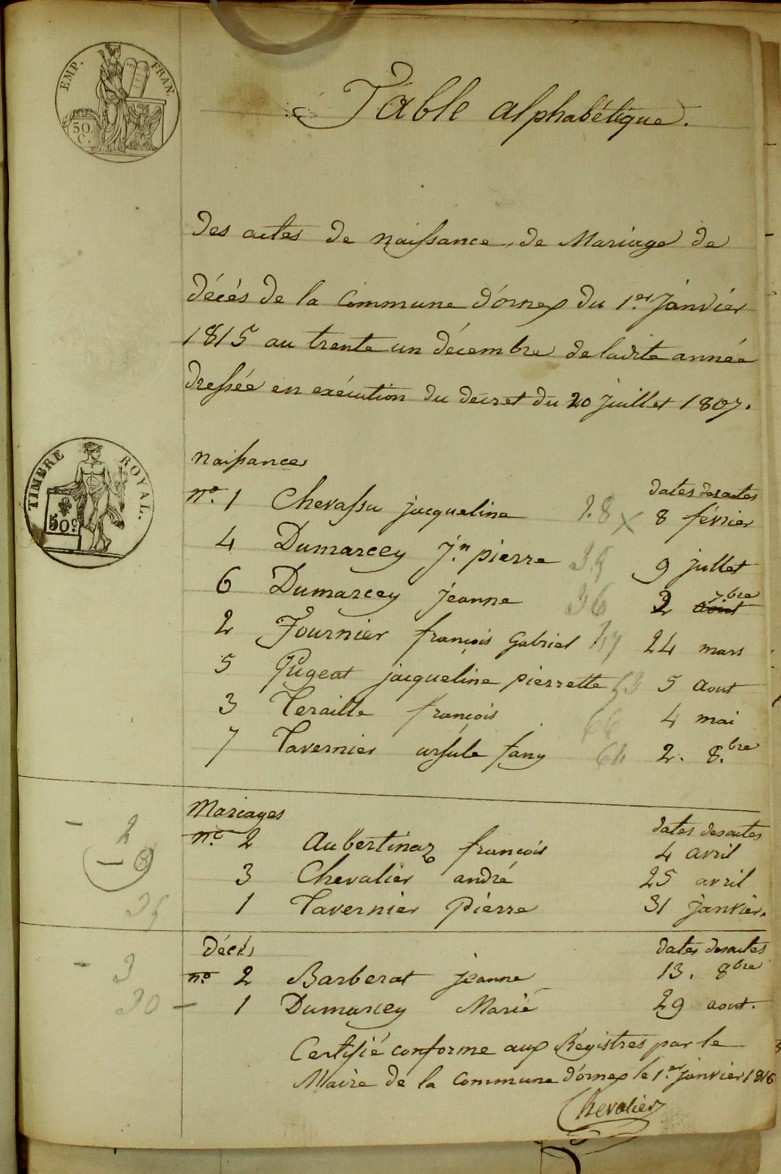 EMP. FRAN.
50 C.
Table alphabétique.
des actes de naissance, de Mariage de
décés de la Commune d'ornex du 1.er Janvier
1815 au trente un décembre de ladite année
dressée en exécution du décret du 20 juillet 1807.
TIMBRE ROYAL.
50c
naissances
dates des actes
no. 1 Chevassu jacqueline 28 x 8 février
4 Dumarcey j.n pierre 35 9 jullet
6 Dumarcey jeanne 36 2 aout 7.bre
2 Fournier françois Gabriel 47 24 mars
5 Pugeat jacqueline pierrette 53 5 aout
3 Teraille françois 66 4 mai
7 Tavernier ursule fany 64 2. 8.bre
Mariages
dates des actes
no. 2 Aubertinaz françois 4 avril
3 Chevalier andré 25 avril
1 Tavernier pierre 31 janvier.
Décés
dates des actes
no. 2 Barberat jeanne 13. 8bre
1 Dumarcey Marie 29 aout.
Certifié conforme aux Registres par le
Maire de la Commune d'ornex le 1.er janvier 1816
Chevalier
- 2
- 3
30 -